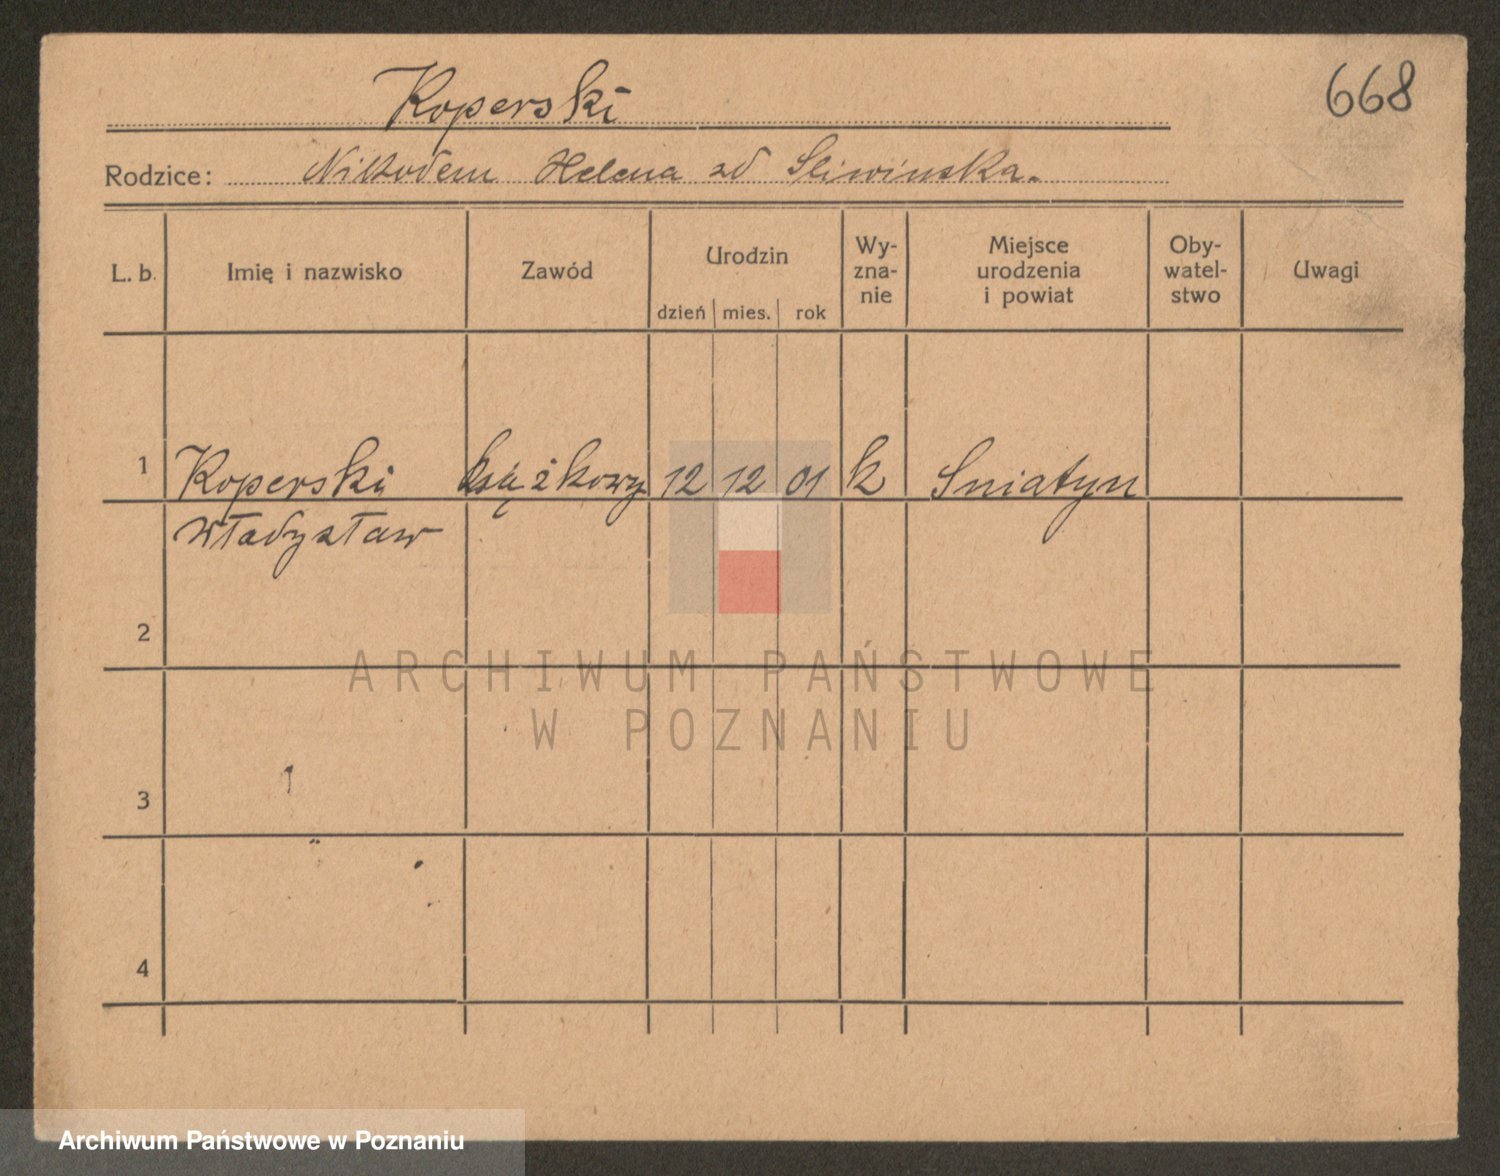 Koperski
668
Rodzice: Nikodem Helena zd Sliwinska.
L. b. Imię i nazwisko Zawód Urodzin dzień mies. rok Wy-zna-nie Miejsce urodzenia i powiat Oby-watel-stwo Uwagi
1 Koperski książkowy 12 12 01 k Sniatyn
Władysław
2
3
4
ARCHIWUM PAŃSTWOWE
W POZNANIU
Archiwum Państwowe w Poznaniu